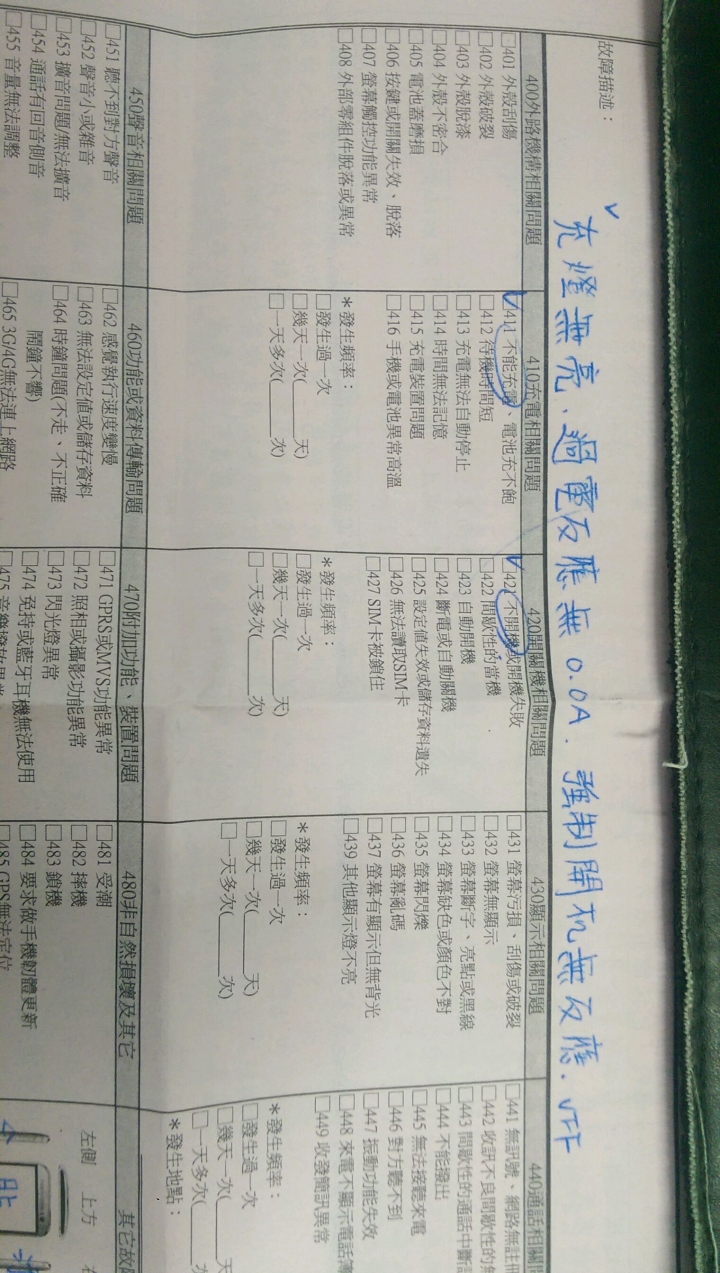 故障描述：
✓充燈無亮、過電反應無 0.0A. 強制開机無反應.
400外路機構相關問題
□401 外殼刮傷
□402 外殼破裂
□403 外殼脫漆
□404 外殼不密合
□405 電池蓋磨損
□406 按鍵或開關失效、脫落
□407 螢幕觸控功能異常
□408 外部零組件脫落或異常
410充電相關問題
411 不能充電、電池充不飽
□412 待機時間短
□413 充電無法自動停止
□414 時間無法記憶
□415 充電裝置問題
□416 手機或電池異常高溫
*發生頻率：
□發生過一次
□幾天一次(____天)
□一天多次(____次)
420開關機相關問題
421 不開機或開機失敗
□422 間歇性的當機
□423 自動開機
□424 斷電或自動關機
□425 設定值失效或儲存資料遺失
□426 無法讀取SIM卡
□427 SIM卡被鎖住
*發生頻率：
□發生過一次
□幾天一次(____天)
□一天多次(____次)
430顯示相關問題
□431 螢幕污損、刮傷或破裂
□432 螢幕無顯示
□433 螢幕斷字、亮點或黑線
□434 螢幕缺色或顏色不對
□435 螢幕閃爍
□436 螢幕亂碼
□437 螢幕有顯示但無背光
□439 其他顯示燈不亮
*發生頻率：
□發生過一次
□幾天一次(____天)
□一天多次(____次)
440通話相關問
□441 無訊號、網路無註冊
□442 收訊不良間歇性的
□443 間歇性的通話中斷
□444 不能撥出
□445 無法接聽來電
□446 對方聽不到
□447 振動功能失效
□448 來電不顯示電話簿
□449 收發簡訊異常
*發生頻率：
□發生過一次
□幾天一次(____天
□一天多次(____次
*發生地點：
450聲音相關問題
□451 聽不到對方聲音
□452 聲音小或雜音
□453 擴音問題/無法擴音
□454 通話有回音側音
□455 音量無法調整
460功能或資料傳輸問題
□462 感覺執行速度變慢
□463 無法設定值或儲存資料
□464 時鐘問題(不走、不正確
鬧鐘不響)
□465 3G/4G無法連上網路
470附加功能、裝置問題
□471 GPRS或MVS功能異常
□472 照相或攝影功能異常
□473 閃光燈異常
□474 免持或藍牙耳機無法使用
□475
480非自然損壞及其它
□481 受潮
□482 摔機
□483 鎖機
□484 要求做手機韌體更新
□485 GPS無法定位
其它故
左側 上方